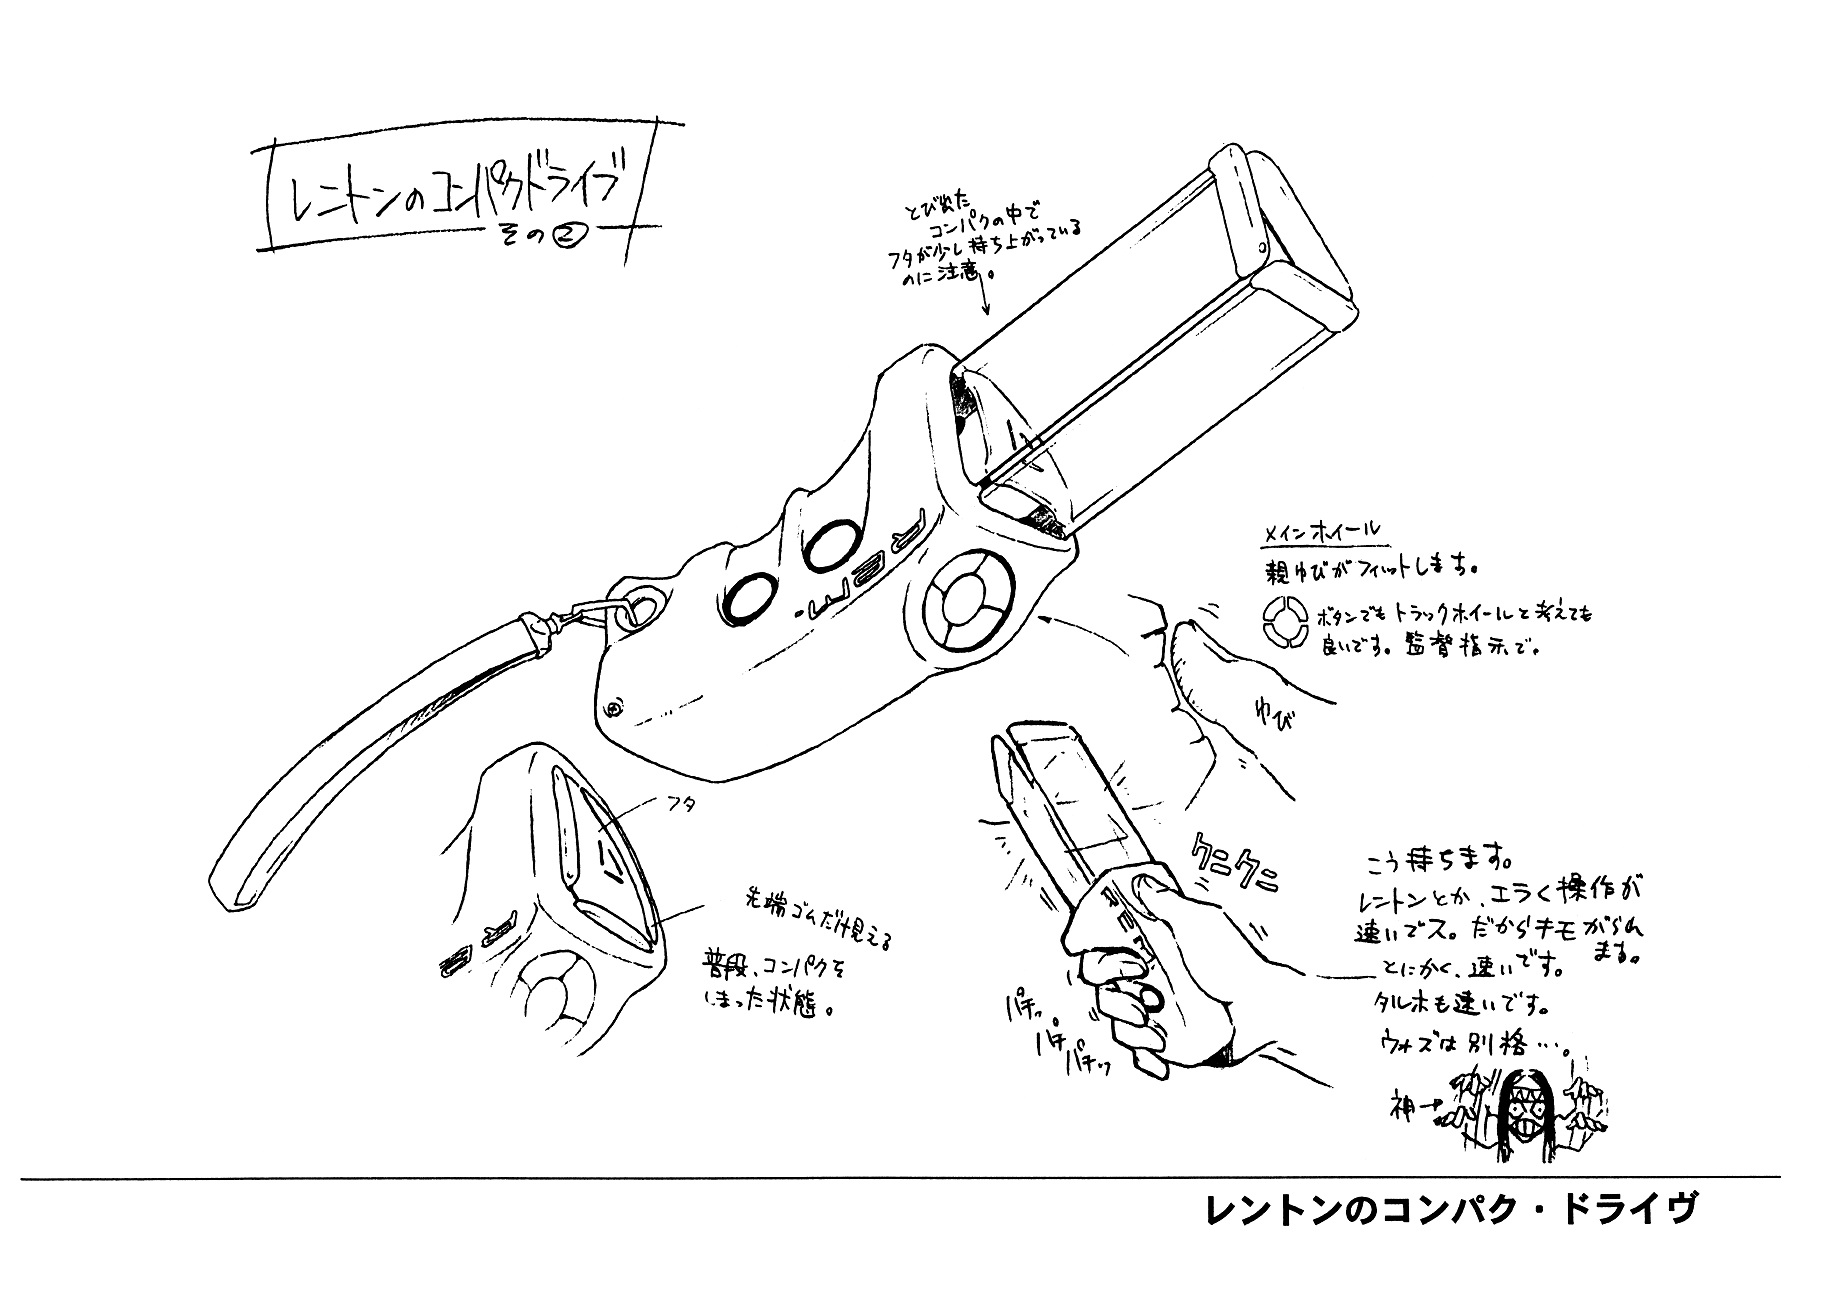 レントンのコンパクドライブ
その②
とび出た
コンパクの中で
フタが少し持ち上がっている
のに注意。
メインホイール
親ゆびがフィットします。
ボタンでもトラックホイールと考えても
良いです。監督指示で。
ゆび
フタ
先端ゴムだけ見える
普段、コンパクを
しまった状態。
クニクニ
パチッ。
パチ
パチッ
こう持ちます。
レントンとか、エラく操作が
速いでス。だからキモがられ
まる。
とにかく、速いです。
タルホも速いです。
ウォズは別格…。
神→
レントンのコンパク・ドライヴ